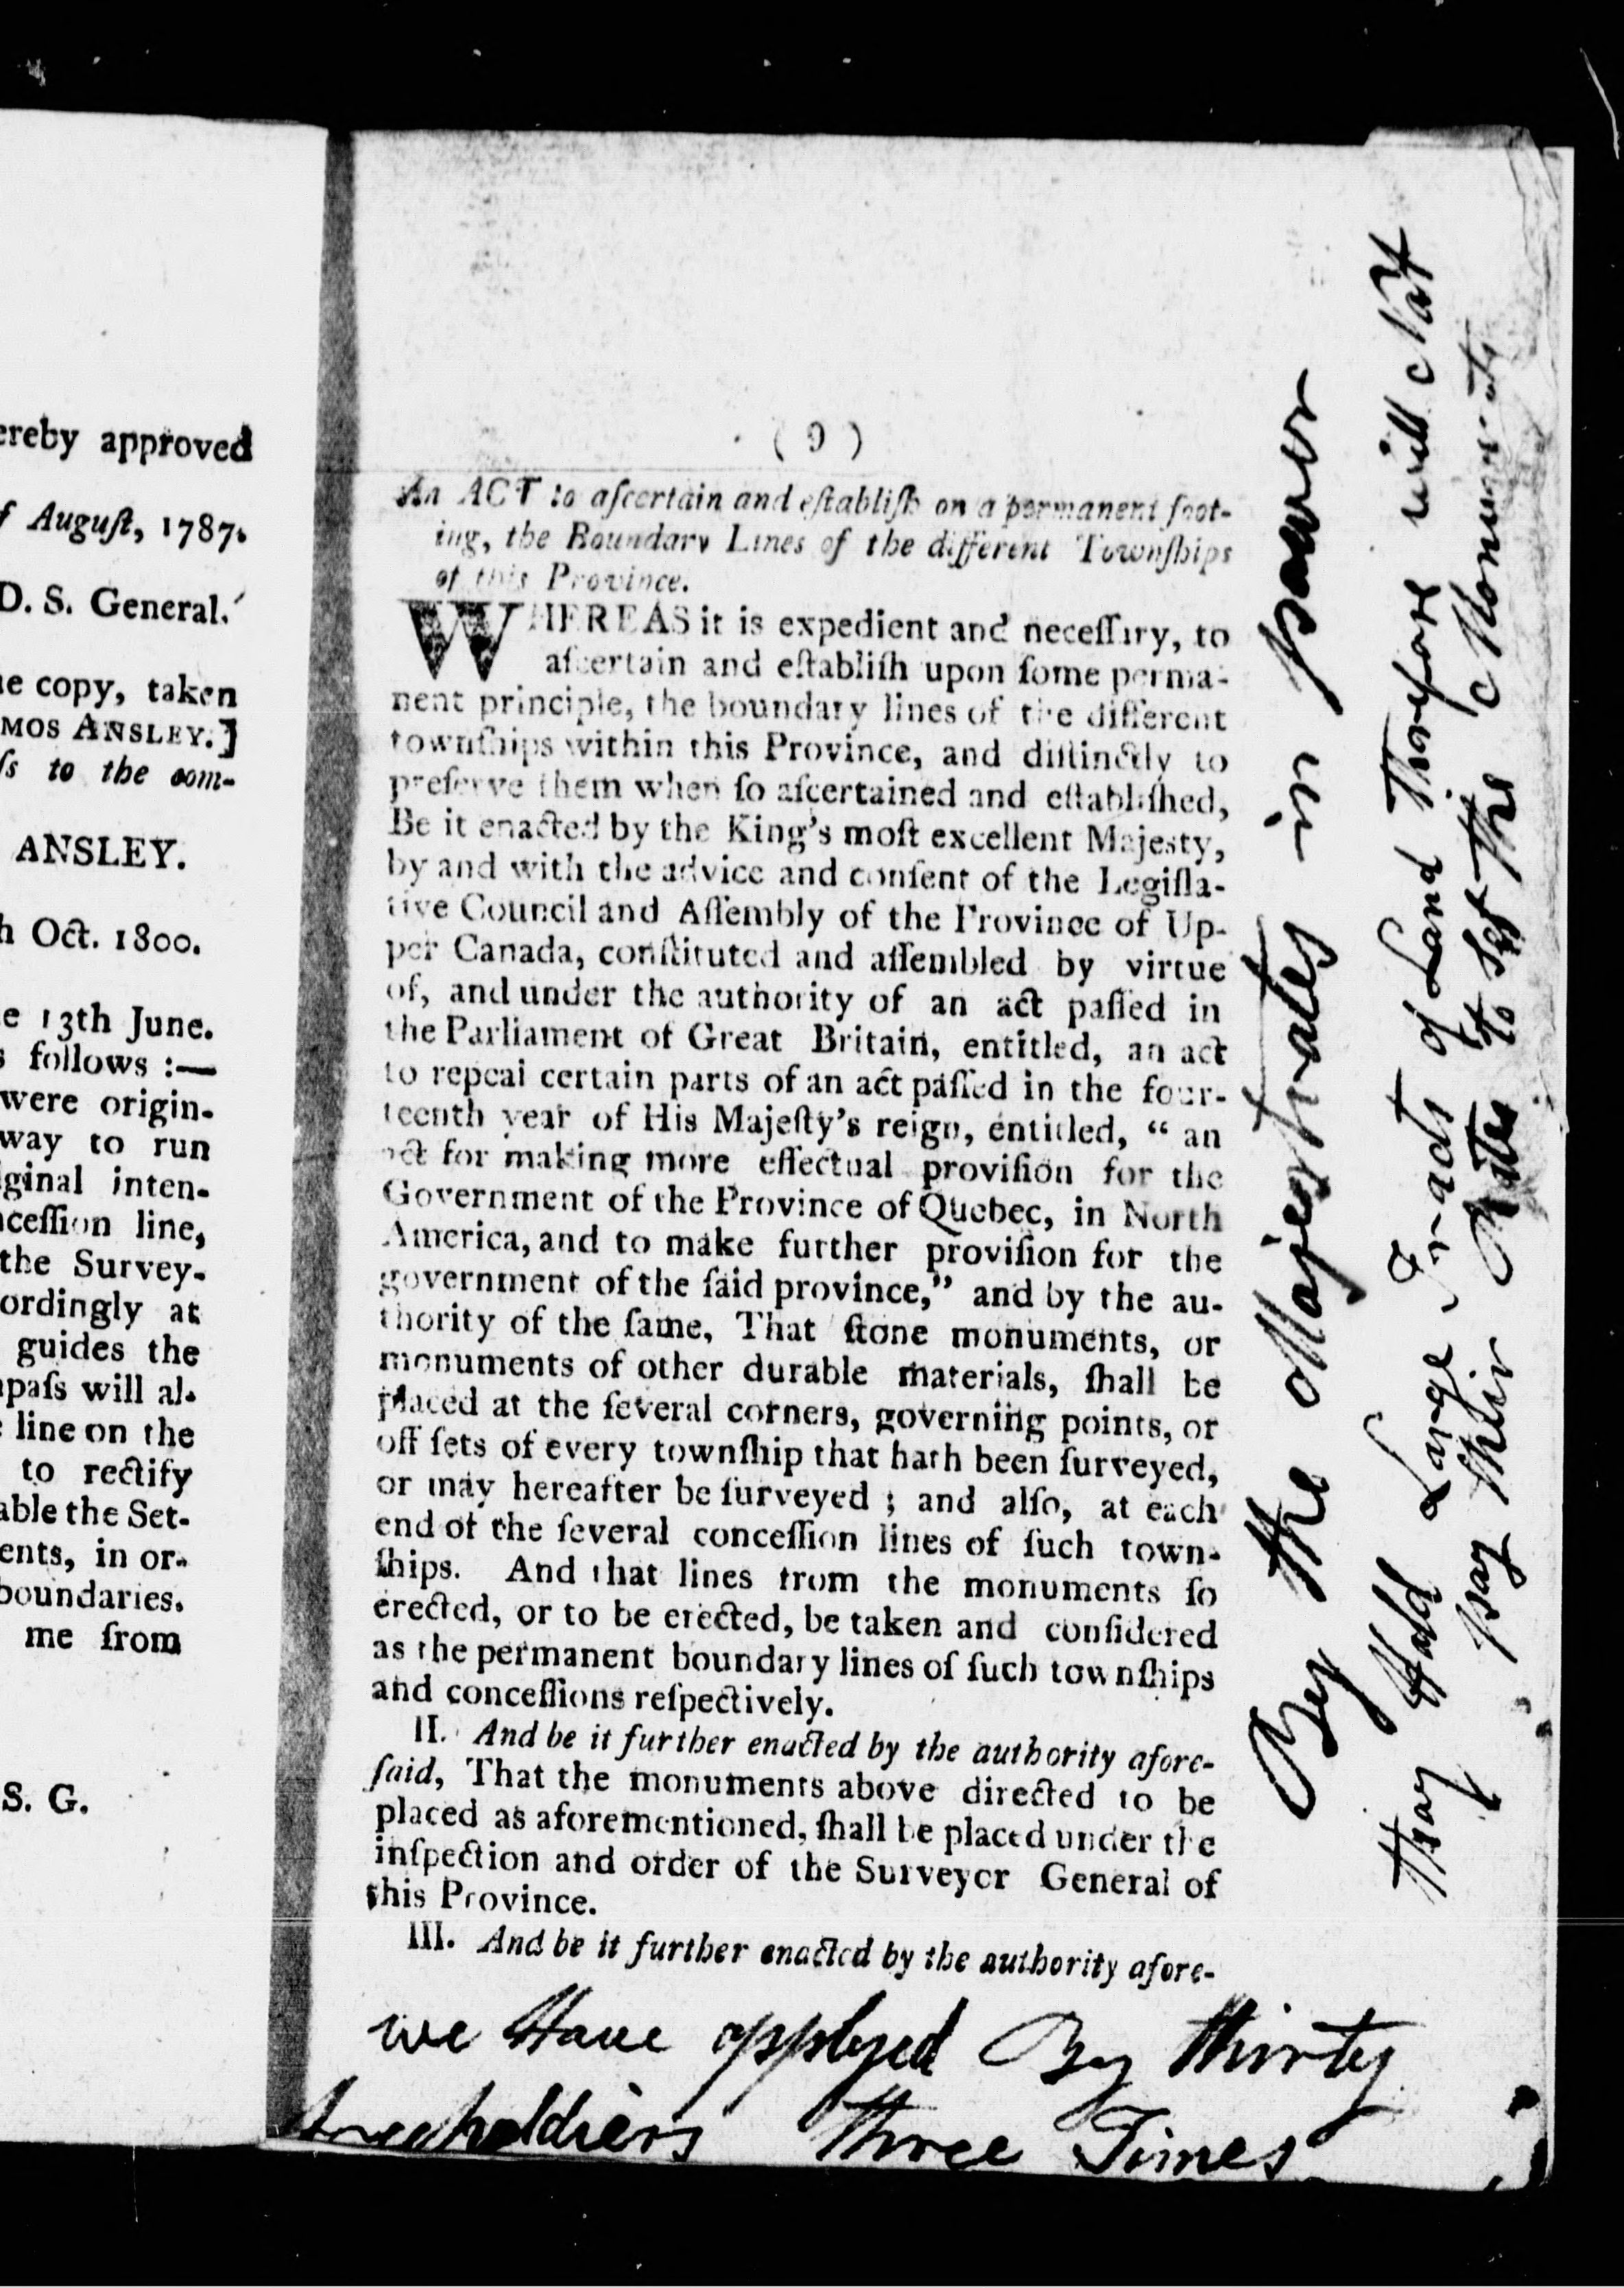 ereby approved
f Auguſt, 1787.
D. S. General.
ue copy, taken
MOS ANSLEY.]
ſs to the com-
ANSLEY.
h Oct. 1800.
e 13th June.
s follows :—
were origin-
way to run
iginal inten-
nceſſion line,
the Survey-
ordingly at
guides the
mpaſs will al-
line on the
to rectify
able the Set-
ents, in or-
boundaries.
me from
S. G.
( 9 )
An ACT to aſcertain and eſtabliſh on a permanent foot-
ing, the Boundary Lines of the different Townſhips
of this Province.
WHEREAS it is expedient and neceſſary, to
aſcertain and eſtabliſh upon ſome perma-
nent principle, the boundary lines of the different
townſhips within this Province, and diſtinctly to
preſerve them when ſo aſcertained and eſtabliſhed,
Be it enacted by the King's moſt excellent Majesty,
by and with the advice and conſent of the Legiſla-
tive Council and Aſſembly of the Province of Up-
per Canada, conſtituted and aſſembled by virtue
of, and under the authority of an act paſſed in
the Parliament of Great Britain, entitled, an act
to repeal certain parts of an act paſſed in the four-
teenth year of His Majeſty's reign, entitled, “ an
act for making more effectual proviſion for the
Government of the Province of Quebec, in North
America, and to make further proviſion for the
government of the ſaid province,” and by the au-
thority of the ſame, That ſtone monuments, or
monuments of other durable materials, ſhall be
placed at the ſeveral corners, governing points, or
off ſets of every townſhip that hath been ſurveyed,
or may hereafter be ſurveyed ; and alſo, at each
end of the ſeveral conceſſion lines of ſuch town-
ſhips. And that lines from the monuments ſo
erected, or to be erected, be taken and conſidered
as the permanent boundary lines of ſuch townſhips
and conceſſions reſpectively.
II. And be it further enacted by the authority afore-
ſaid, That the monuments above directed to be
placed as aforementioned, ſhall be placed under the
inſpection and order of the Surveyor General of
this Province.
III. And be it further enacted by the authority afore-
we Have applyed By thirty
freeholdiers three Times
By the Majestrates in power
thay Hold Large Tracts of Land therefore will Not
pay their Rates to set the Monuments